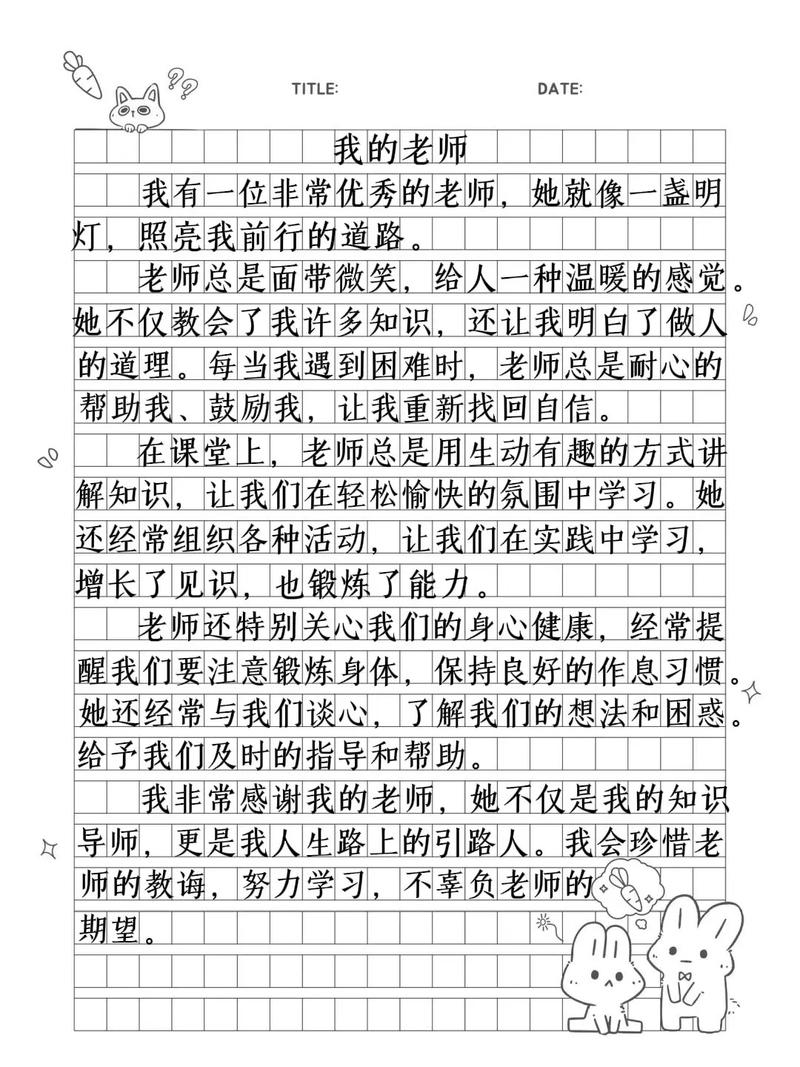 TITLE: DATE:
我的老师
我有一位非常优秀的老师，她就像一盏明
灯，照亮我前行的道路。
老师总是面带微笑，给人一种温暖的感觉。
她不仅教会了我许多知识，还让我明白了做人
的道理。每当我遇到困难时，老师总是耐心的
帮助我、鼓励我，让我重新找回自信。
在课堂上，老师总是用生动有趣的方式讲
解知识，让我们在轻松愉快的氛围中学习。她
还经常组织各种活动，让我们在实践中学习，
增长了见识，也锻炼了能力。
老师还特别关心我们的身心健康，经常提
醒我们要注意锻炼身体，保持良好的作息习惯。
她还经常与我们谈心，了解我们的想法和困惑。
给予我们及时的指导和帮助。
我非常感谢我的老师，她不仅是我的知识
导师，更是我人生路上的引路人。我会珍惜老
师的教诲，努力学习，不辜负老师的
期望。